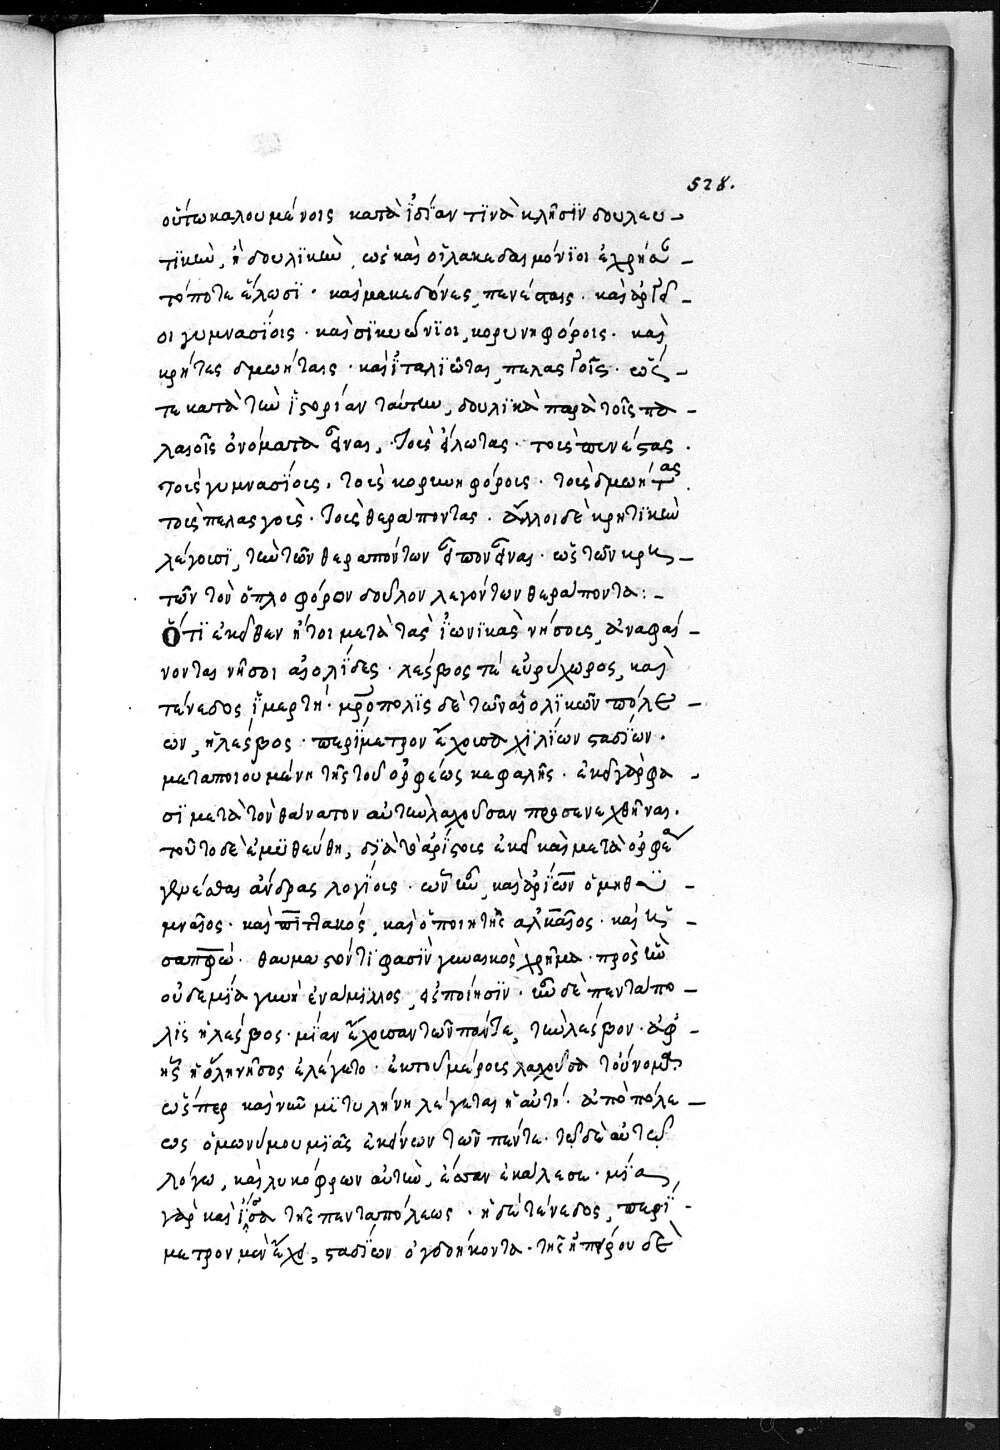 528.
οὕτω καλουμένοις κατὰ ἰδίαν τινὰ κλῆσιν δουλευ-
τικὴν, ἢ δουλικὴν, ὡς καὶ οἱ λακεδαιμόνιοι ἐχρῆν-
τό ποτε εἵλωσι. καὶ μακεδόνες, πενέσταις. καὶ ἀργεῖ-
οι γυμνασίοις. καὶ σικυώνιοι, κορυνηφόροις. καὶ
κρῆτες δμωῆταις. καὶ ἰταλιῶται, πελασγοῖς. ὥς-
τε κατὰ τὴν ἱστορίαν ταύτην, δουλικὰ παρὰ τοῖς πα-
λαιοῖς ὀνόματα εἶναι, τοὺς εἵλωτας. τοὺς πενέστας.
τοὺς γυμνασίους. τοὺς κορυνηφόρους. τοὺς δμωήτας
τοὺς πελασγούς. τοὺς θεράποντας. ἄλλοι δὲ κρητικὴν
λέγουσι, τὴν τῶν θεραπόντων εἶναι. ὡς τῶν κρη-
τῶν τὸν ὁπλοφόρον δοῦλον λεγόντων θεράποντα:-
Ὅτι ἐκεῖθεν ἤτοι μετὰ τὰς ἰωνικὰς νήσους, ἀναφαί-
νονται νῆσοι αἰολίδες. λέσβος τέ εὐρύχωρος, καὶ
τένεδος ἱμερτή. μητρόπολις δὲ τῶν αἰολικῶν πόλε-
ων, ἡ λέσβος. περίμετρον ἔχουσα χιλίων σταδίων.
μεταποιουμένη τῆς τοῦ ὀρφέως κεφαλῆς. ἐκεῖ γὰρ φα-
σὶ μετὰ τὸν θάνατον αὐτὴν λαχοῦσαν προσενεχθῆναι.
τοῦτο δὲ ἐμυθεύθη, διὰ τὸ ἀρίστους ἐκεῖ καὶ μετὰ ὀρφέα
γενέσθαι ἄνδρας λογίους. ὧν ἦν, καὶ ἀρίων ὁ μηθυ-
μναῖος. καὶ πιττακός, καὶ ὁ ποιητὴς ἀλκαῖος. καὶ ἡ
σαπφώ. θαυμαστόν τι φασὶν γυναικὸς χρῆμα. πρὸς ἣν
οὐδεμία γυνὴ ἐνάμιλλος εἰς ποίησιν. ἦν δὲ πεντάπο-
λις ἡ λέσβος. μίαν ἔχουσαν τῶν πέντε, τὴν λέσβον. ἀφ'
ἧς ἡ ὅλη νῆσος ἐλέγετο. ἐκ τοῦ μέρους λαχοῦσα τοὔνομα.
ὥσπερ καὶ νῦν μιτυλήνη λέγεται ἡ αὐτή. ἀπὸ πόλε-
ως ὁμωνύμου μιᾶς ἐκείνων τῶν πέντε. τῷ δὲ αὐτῷ
λόγω, καὶ λυκόφρων αὐτὴν, ἴσσαν ἐκάλεσε. μία
γὰρ καὶ ἴσσα τῆς πενταπόλεως. ἡ δὲ τένεδος, περί-
μετρον μὲν ἔχει, σταδίων ὀγδοήκοντα. τῆς ἠπείρου δὲ